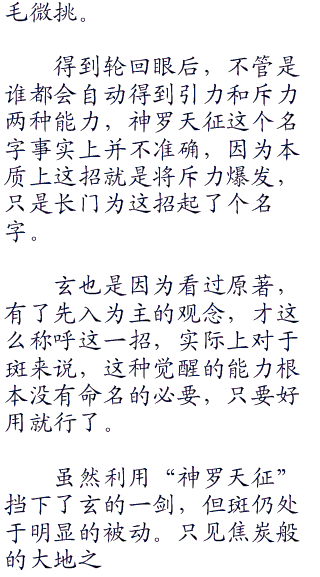 毛微挑。
得到轮回眼后，不管是
谁都会自动得到引力和斥力
两种能力，神罗天征这个名
字事实上并不准确，因为本
质上这招就是将斥力爆发，
只是长门为这招起了个名
字。
玄也是因为看过原著，
有了先入为主的观念，才这
么称呼这一招，实际上对于
斑来说，这种觉醒的能力根
本没有命名的必要，只要好
用就行了。
虽然利用“神罗天征”
挡下了玄的一剑，但斑仍处
于明显的被动。只见焦炭般
的大地之